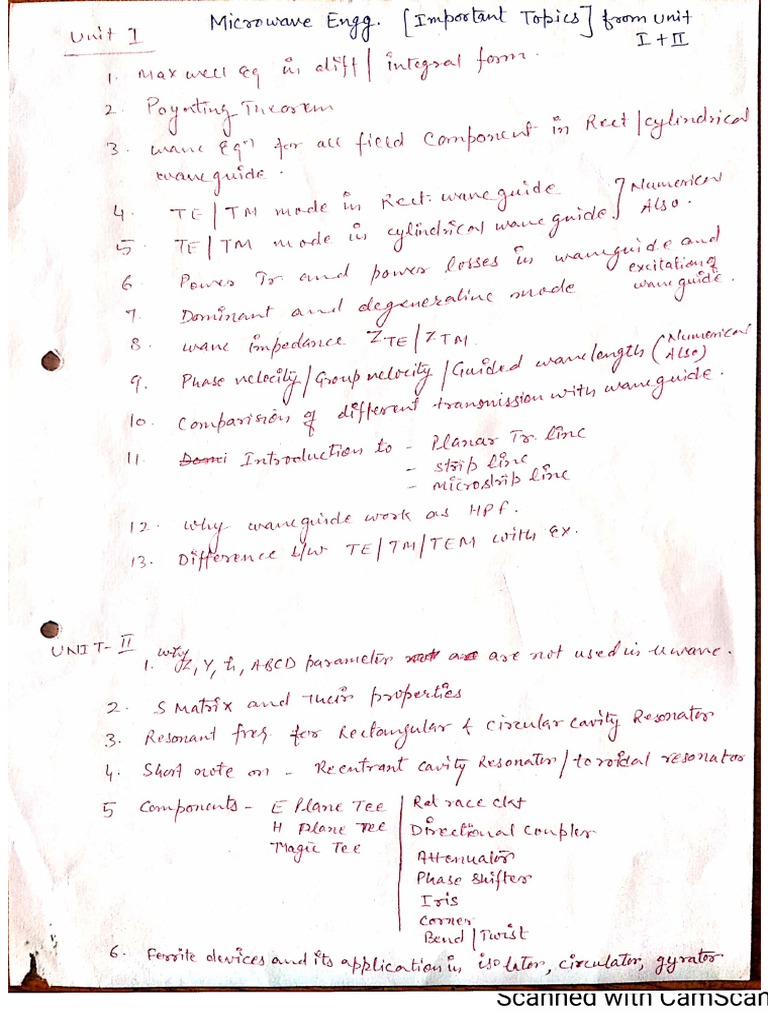 Microwave Engg. [Important Topics] from Unit
I + II
Unit I
1. Maxwell Eq in diff / integral form.
2. Poynting Theorem
3. wave Eqn for all field Component in Rect / cylindrical
waveguide.
4. TE / TM mode in Rect. waveguide
5. TE / TM mode in cylindrical waveguide } Numerical Also.
6. Power Tr and power losses in waveguide and excitation of waveguide.
7. Dominant and degenerative mode
8. wave impedance ZTE / ZTM.
9. Phase velocity / Group velocity / Guided wavelength (Numerical Also)
10. Comparision of different transmission with waveguide.
11. Introduction to - Planar Tr. line
- strip line
- microstrip line
12. Why waveguide work as HPF.
13. Difference b/w TE / TM / TEM with Ex.
UNIT-II
1. why Z, Y, h, ABCD parameter are not used in uwave.
2. S Matrix and their properties
3. Resonant freq for Rectangular & circular cavity Resonator
4. Short note on - Reentrant cavity Resonator / toroidal resonator
5 Components - E Plane Tee
H Plane Tee
Magic Tee
Rat race ckt
Directional coupler
Attenuator
Phase shifter
Iris
Corner
Bend / Twist
6. Ferrite devices and its application in isolator, circulator, gyrator
Scanned with CamScan